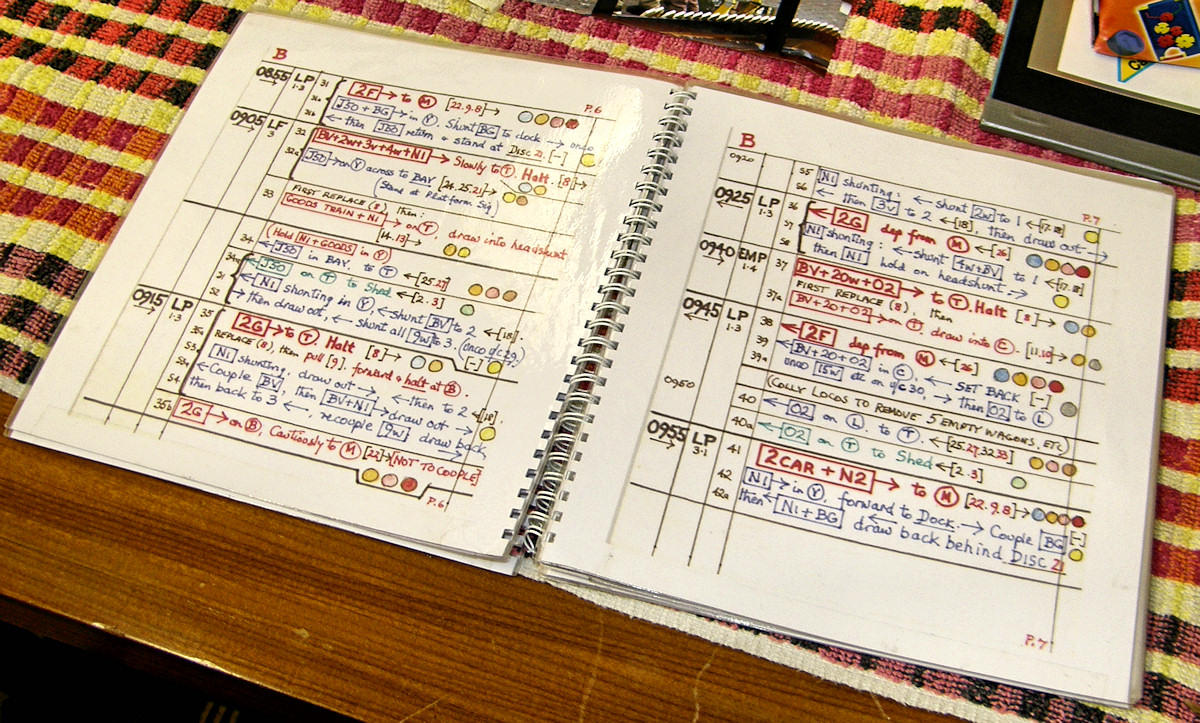 B
P.6
0855 LP 1-3 31 2F → to M [22.9.8] →
31a J50 + BG → in Y. Shunt BG to dock → onco
31b ← then J50 return & stand at Disc 21. [-]
0905 LF 3 32 BV+2w+3v+4w+N1 → Slowly to T. Halt. [8] →
32a J50 → on Y across to BAY [24.25.21] →
(Stand at Platform Sig)
33 FIRST REPLACE (8), then:
GOODS TRAIN + N1 → on T, draw into headshunt
[14.13] →
(Hold N1 + GOODS in Y)
34 ← J50 in BAY, to T ← [25.27]
34a ← J50 on T to Shed ← [2.3]
51 ← N1 shunting in Y, ← shunt BV to 2 ← [18].
52 → then draw out, ← shunt all 9w to 3. (onco u/c 29)
0915 LP 1-3 35 2G → to T Halt [8] → [-]
35a REPLACE (8), then pull [9]. forward & halt at B.
53 N1 shunting. draw out → ← then to 2 ← [18].
53a ← Couple BV, then BV+N1 → draw out →
54 then back to 3 ←, recouple 9w draw back,
35b 2G → on B, Cautiously to M [22] → [NOT TO COUPLE]
P.6
B
P.7
0920 55 N1 shunting: ← shunt 2w to 1 ← [17.18]
56 ← then 3v to 2 ← [18], then draw out →
0925 LP 1-3 36 ← 2G dep from M ← [26]
57 N1 shunting: ← shunt 4w+BV to 1 ← [17.18]
58 then N1 hold on headshunt →
0940 EMP 1-4 37 BV + 20w + O2 → to T. Halt [8] →
FIRST REPLACE (8), then
37a BV + 20 + O2 → on T, draw into C. [11.10] →
0945 LP 1-3 38 ← 2F dep from M ← [26]
39 ← BV + 20 + O2 in C, ← SET BACK [-]
39a onco 15w etc on u/c 30, → then O2 to L
0950 (COLLY LOCOS TO REMOVE 5 EMPTY WAGONS, ETC)
40 ← O2 on L, to T. ← [25.27.32.33]
40a ← O2 on T to Shed ← [2.3]
0955 LP 3-1 41 2CAR + N2 → to M [22.9.8] →
42 N1 → in Y, forward to Dock. → Couple BG [-]
42a then ← N1 + BG ← draw back behind DISC 21
P.7